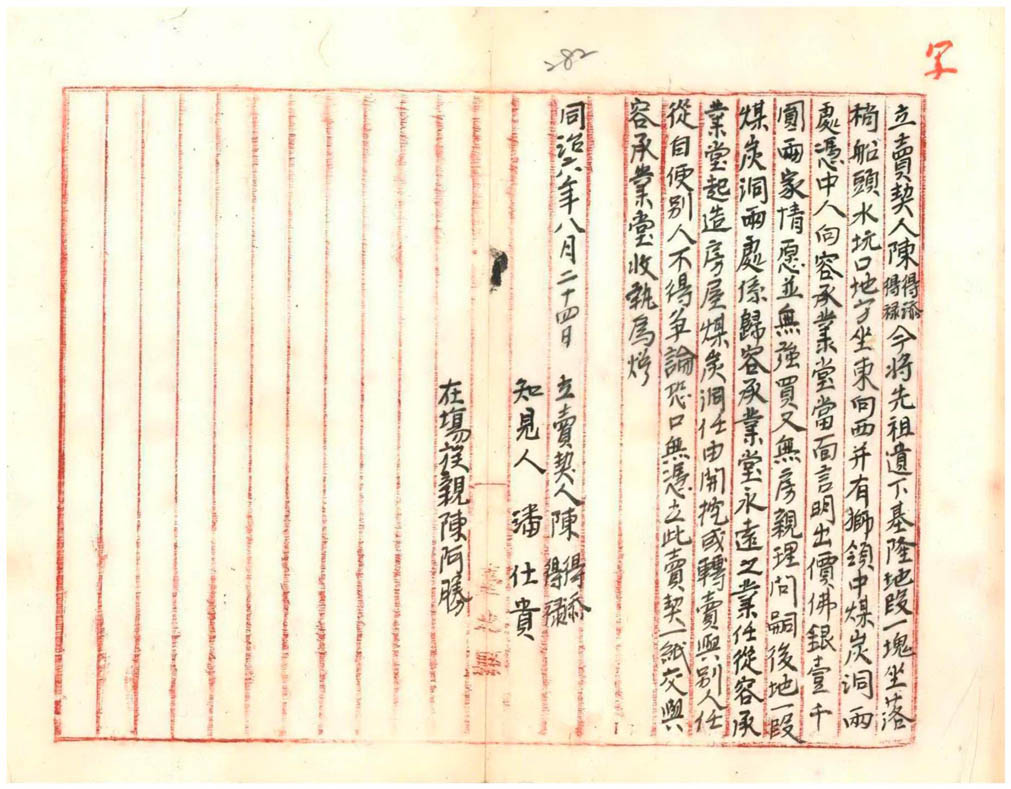 字
282
立賣契人陳得添得祿今将先祖遺下基隆地段一塊坐落
梢船頭水坑口地方坐東向西并有獅領中煤炭洞兩
處憑中人向容承業堂當面言明出價佛銀壹千
圓兩家情愿並無強買又無房親理問嗣後地一段
煤炭洞兩處係歸容承業堂永遠之業任從容承
業堂起造房屋煤炭洞任由開挖或轉賣與別人任
從自便別人不得争論恐口無憑立此賣契一紙交與
容承業堂收執為炤
同治六年八月二十四日 立賣契人陳得添得祿
知見人 潘仕貴
在塲
親陳阿勝